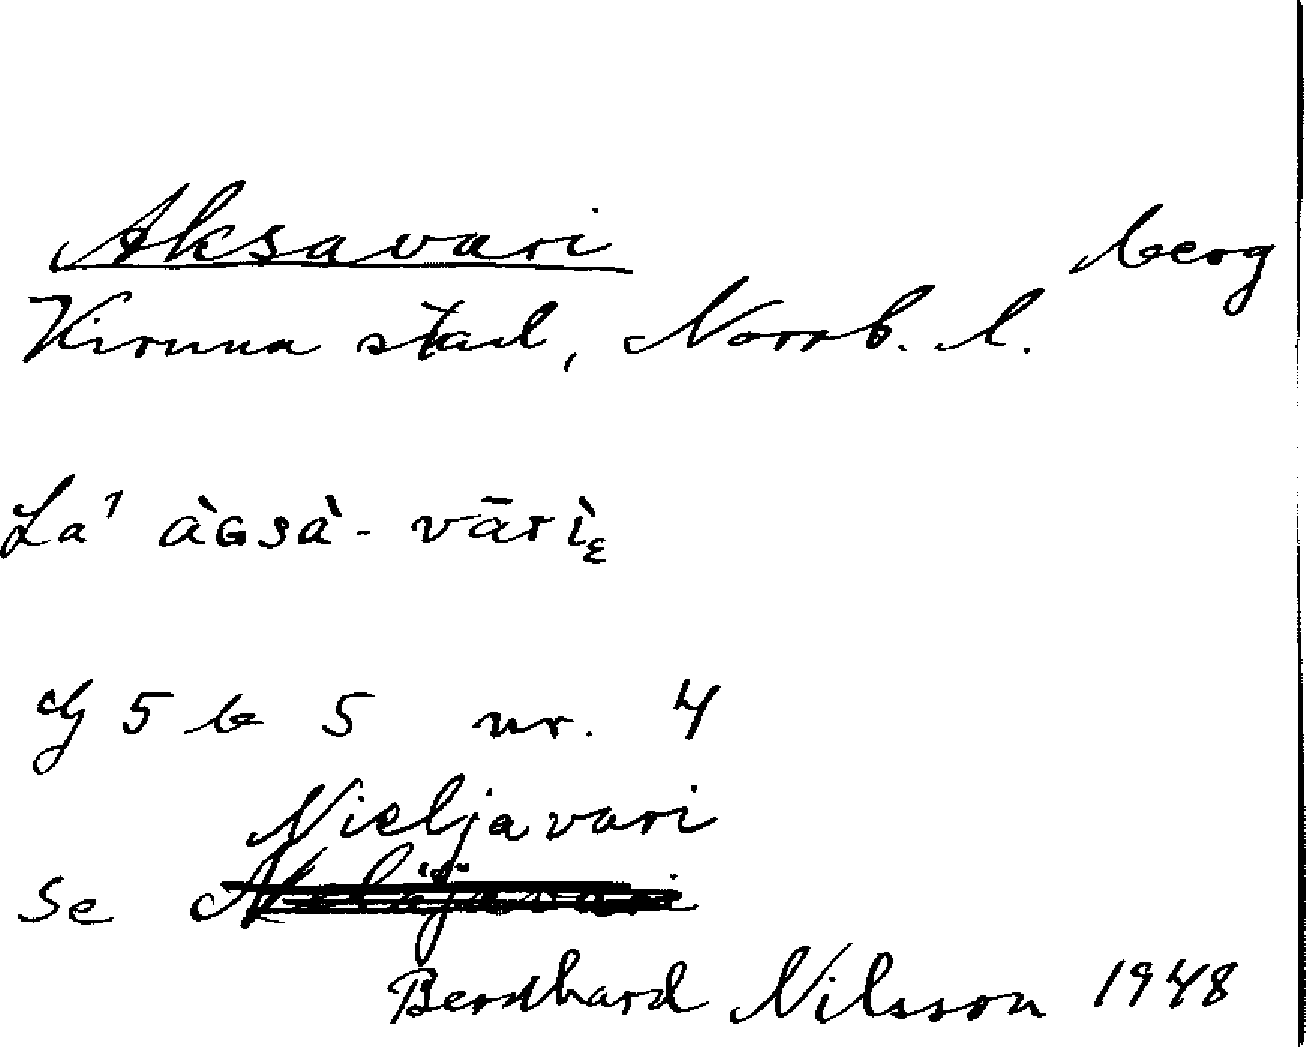 Aksavari berg
Kiruna stad, Norrb. l.
La' àɢsà-vārìᵋ
G 5 b 5 nr. 4
Nieljavari
Se
Berdhard Nilsson 1948